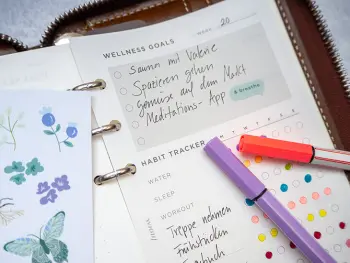 WEEK 20
WELLNESS GOALS
Sauna mit Valerie
Spazieren gehen
gemüse auf dem Markt
Meditations-App
breathe
HABIT TRACKER
M T W T F S S
WATER
SLEEP
WORKOUT
Treppe nehmen
Frühstücken